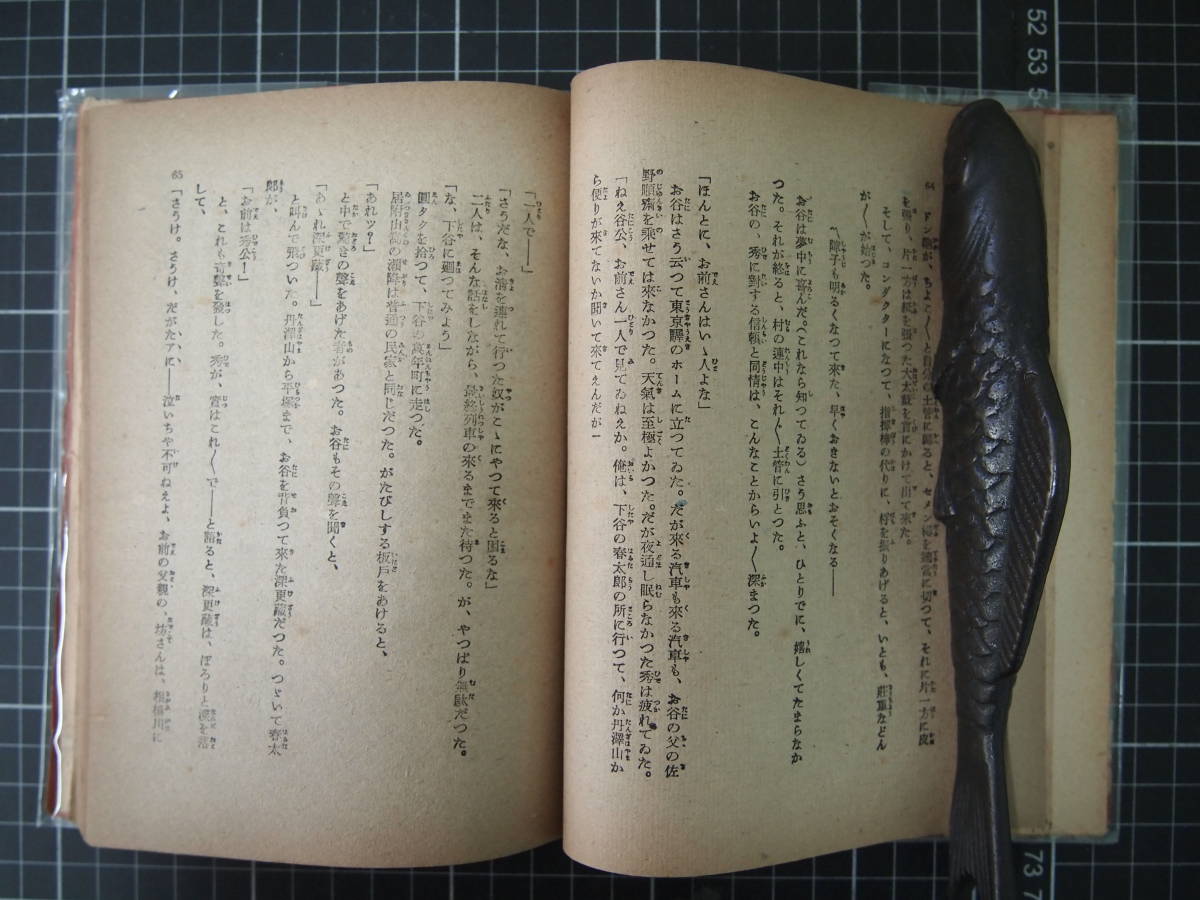 64
を張り、片一方は紙を張つた大太鼓を首にかけて出て來た。
そして、コンダクターになつて、指揮棒の代りに、村を振りあげると、いとも、莊重などん
が〳〵が始つた。
〽障子も明るくなつて來た、早くおきないとおそくなる――
お谷は夢中に喜んだ。（これなら知つてゐる）さう思ふと、ひとりでに、嬉しくてたまらなか
つた。それが終ると、村の連中はそれ〴〵土管に引とつた。
お谷の、秀に對する信頼と同情は、こんなことからいよ〳〵深まつた。
「ほんとに、お前さんはいゝ人よな」
お谷はさう云つて東京驛のホームに立つてゐた。だが來る汽車も來る汽車も、お谷の父の佐
野順齋を乘せては來なかつた。天氣は至極よかつた。だが夜通し眠らなかつた秀は疲れてゐた。
「ねえ谷公、お前さん一人で見てゐねえか。俺は、下谷の春太郎の所に行つて、何か丹澤山か
ら便りが來てないか聞いて來てえんだが―
「一人で――」
「さうだな、お清を連れて行つた奴がこゝにやつて來ると困るな」
二人は、そんな話をしながら、最終列車の來るまでまた待つた。が、やつぱり無駄だつた。
「な、下谷に廻つてみよう」
圓タクを拾つて、下谷の萬年町に走つた。
居附山窩の瀬降は普通の民家と同じだつた。がたびしする板戸をあけると、
「あれツ？」
と中で驚きの聲をあげた者があつた。お谷もその聲を聞くと、
「あゝれ深更藏――」
と叫んで飛ついた。丹澤山から平塚まで、お谷を背負つて來た深更藏だつた。つゞいて春太
郎が、
「お前は秀公！」
と、これも奇聲を發した。秀が、實はこれ〳〵で――と語ると、深更藏は、ぽろりと涙を落
して、
「さうけ。さうけ、だがたアに――泣いちや不可ねえよ、お前の父親の、坊さんは、相模川に
65